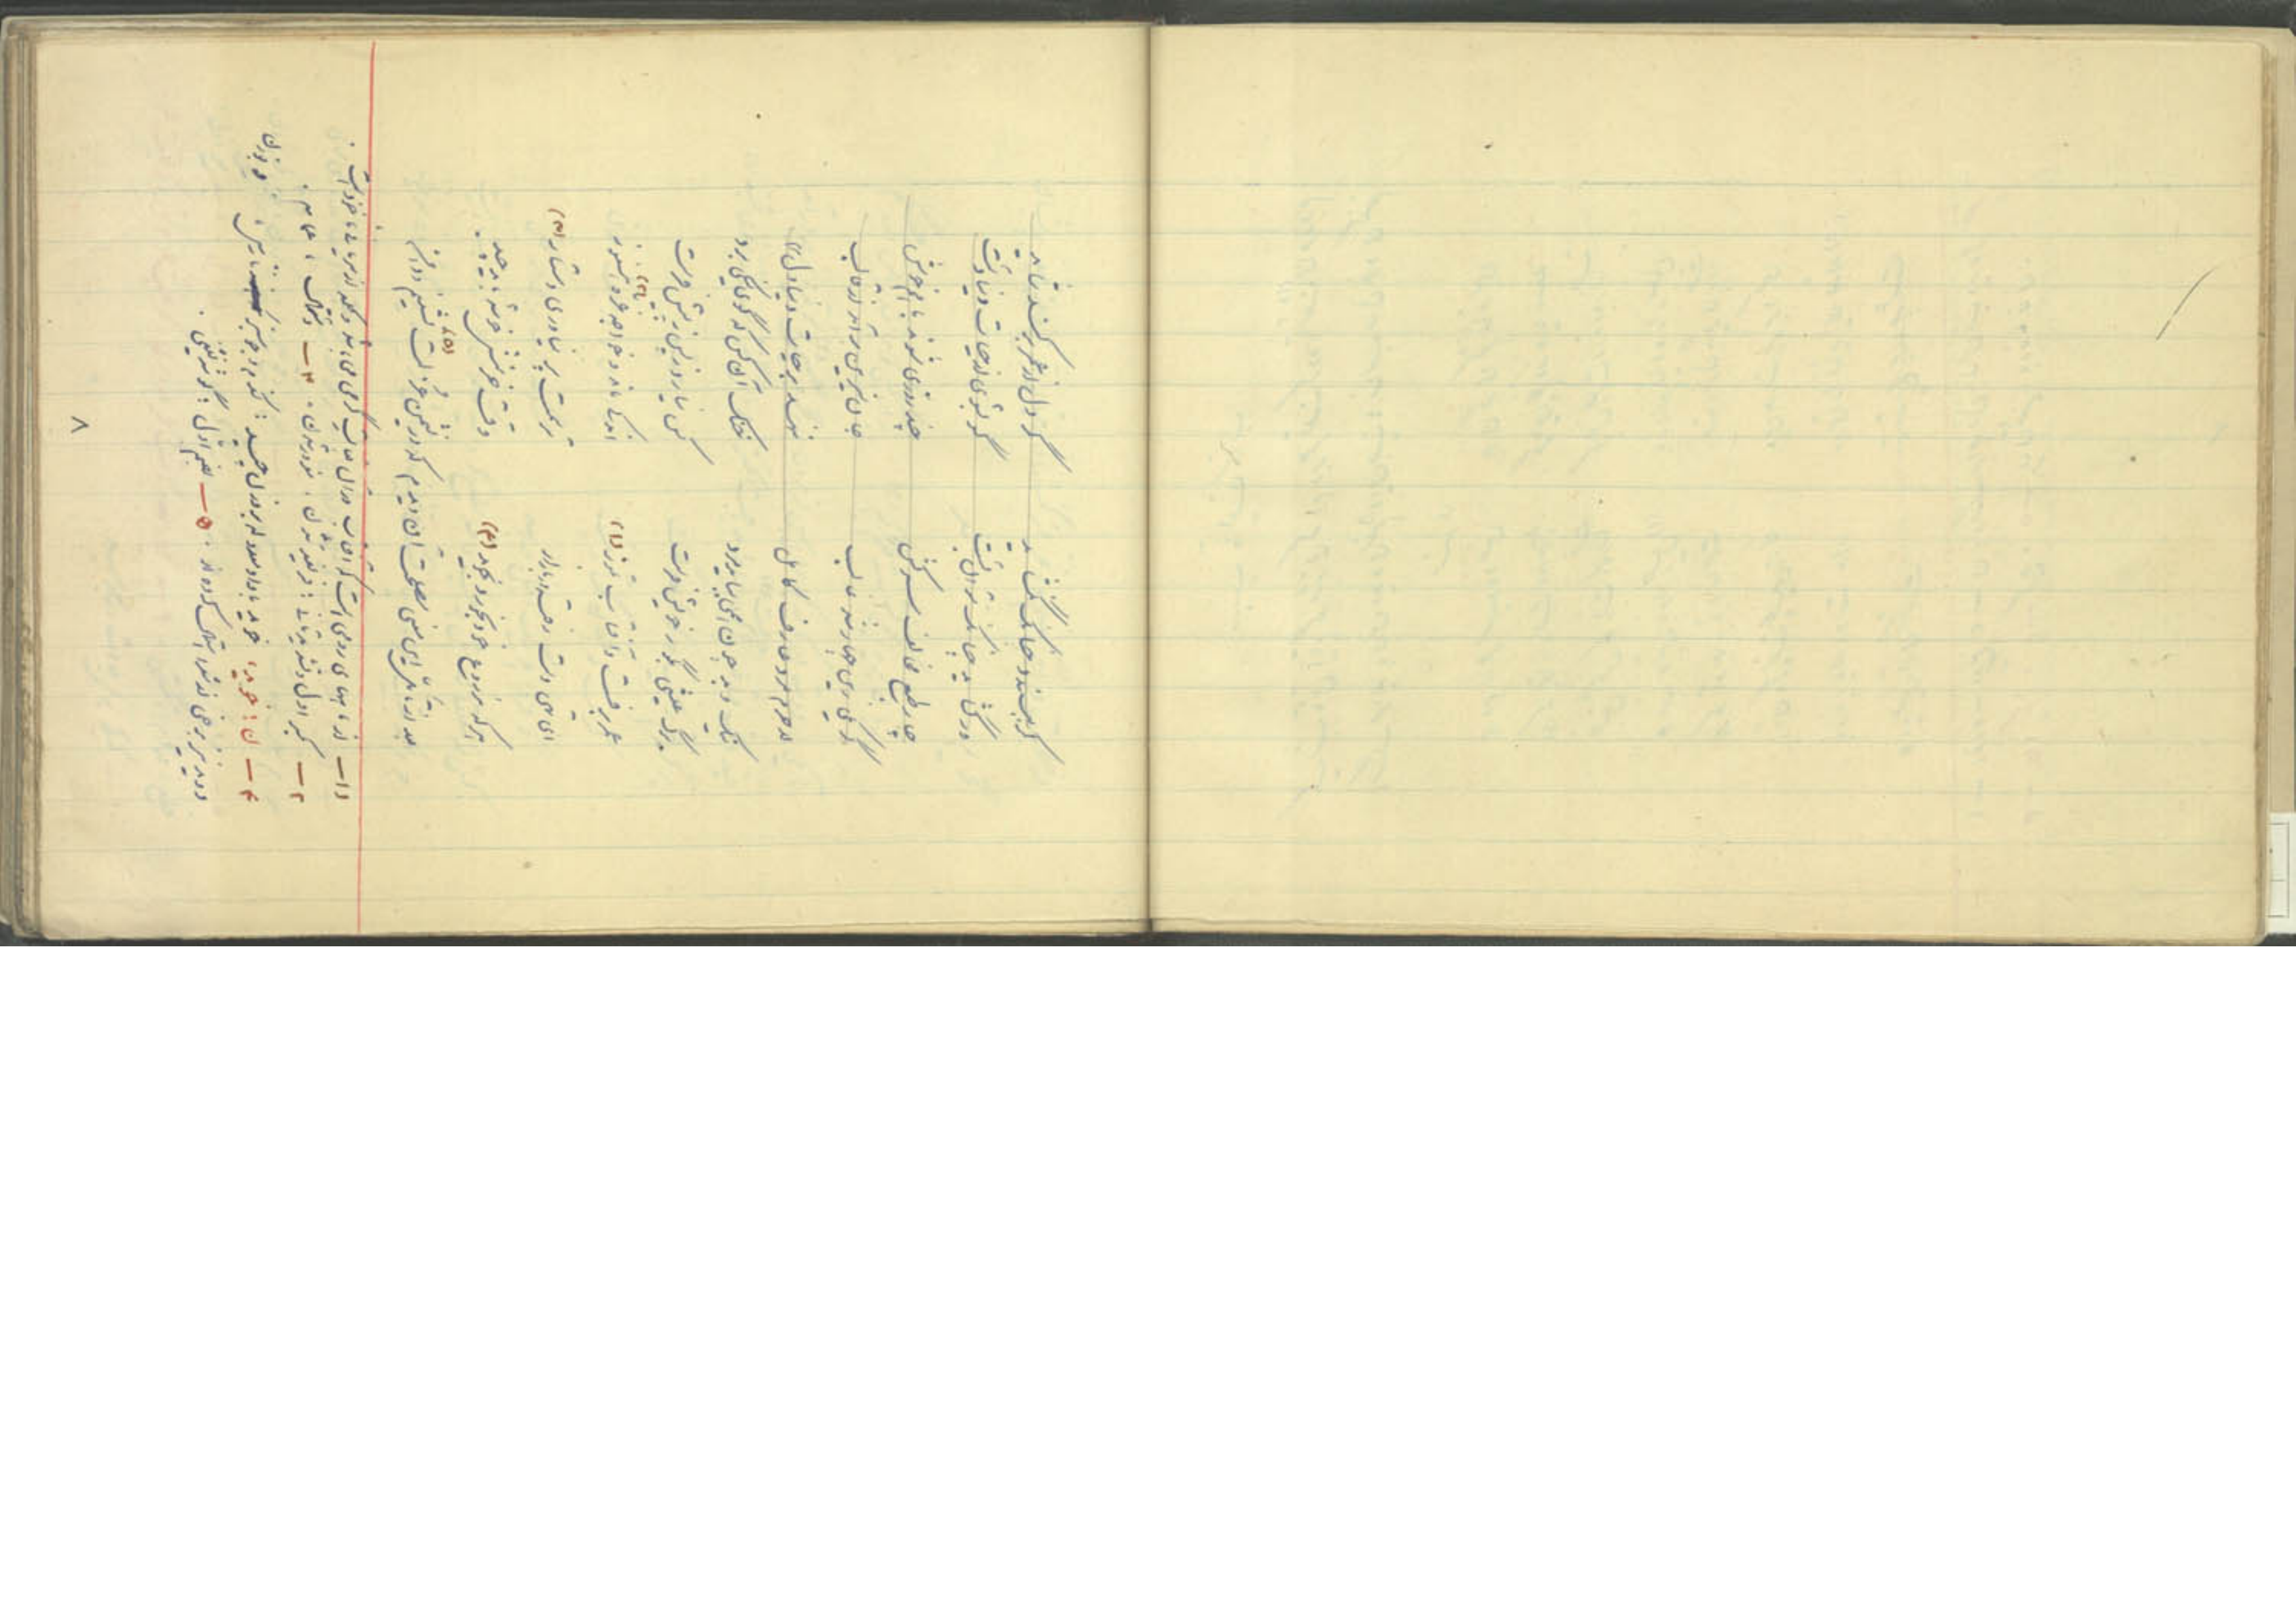 گر ببندد چنانکه نگشاید گر دل از عمر بر کند شاید
ور گشاید چنانکه نتوان بست گو بشوی از حیات دنیا دست
چار طبع مخالف سرکش چند روزی شوند با هم خوش
گر یکی زین چهار شد غالب جان شیرین برآید از قالب
لاجرم مرد عارف کامل ننهد بر حیات دنیا دل
نیک و بد چون همی بباید مرد خنک آن کس که گوی نیکی برد
برگ عیشی بگور خویش فرست کس نیارد ز پس ز پیش فرست
عمر برفست و آفتاب تموز (۱) اندکی ماند و خواجه غره (۲) هنوز
ای تهی دست رفته در بازار ترسمت پر نیاوری دستار (۳)
هر که مزروع خود بخورد بخوید (۴) وقت خرمنش خوشه باید چید.
بعد از تأمل این معنی مصلحت آن دیدم که در نشیمن عزلت (۵) نشینم و دامن
۱ — از ماههای رومی است که آفتاب در آن غایت گرمی می باشد و از سریانی ماخوذ است.
۲ — بکسر اول و تشدید ثانی: فریفته شدن، مغرور شدن. ۳ — دستمال، عمامه.
۴ — ل: خوید، خوید با واو معدوله بروزن چید: گندم و جو سبز نارس. و بوزن
دوید نیز برخی از شعرا استعمال کرده اند. ۵ — بضم اول: گوشه نشینی.
۸